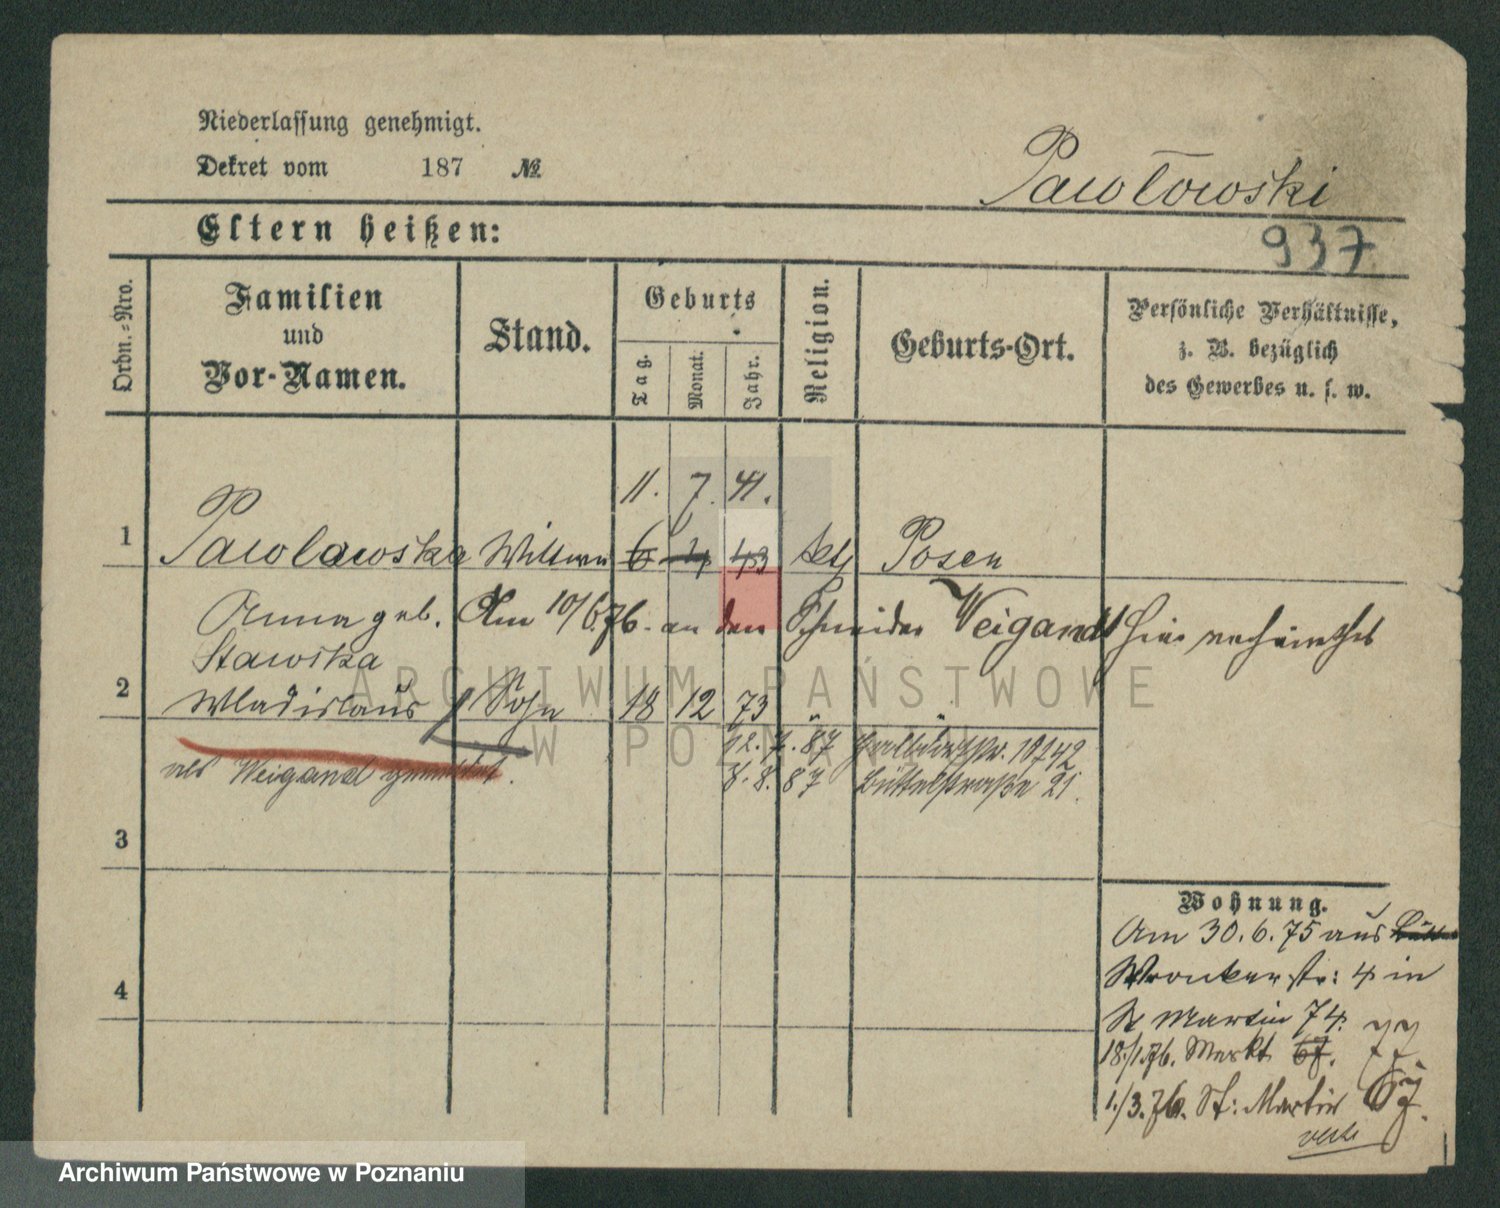 Niederlassung genehmigt.
Dekret vom 187 №
Pawlowski
Eltern heißen:
937
Ordn.-Nro.
Familien
und
Vor-Namen.
Stand.
Geburts
Tag.
Monat.
Jahr.
Religion.
Geburts-Ort.
Persönliche Verhältnisse,
z. B. bezüglich
des Gewerbes u. s. w.
11. 7. 41.
1 Pawlawska Wittwe 6 4 43 kth Posen
Anna geb. Am 10/6.76. an den Schneider Weigandt hier verheirathet
Stawska
2 Wladislaus Sohn 18 12 73 "
12. 7. 87
als Weigand gemeldet.
8. 8. 87 Büttelstraße 21.
3
4
Wohnung.
Am 30.6.75 aus
Wronkerstr: 4 in
St Martin 74.
18/1.76. Markt 67. 77.
1./3.76. St: Martin 67.
ARCHIWUM PAŃSTWOWE
W POZNANIU
Archiwum Państwowe w Poznaniu